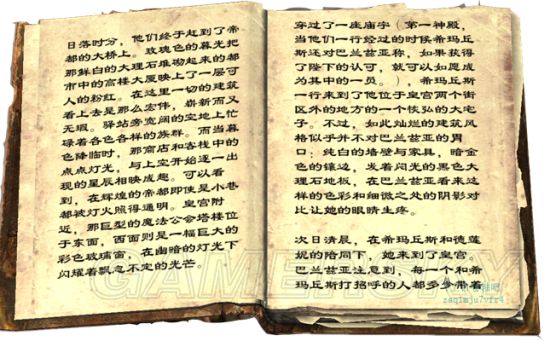 日落时分，他们终于赶到了帝
都的大桥上。玫瑰色的暮光把
那鲜白的大理石堆砌起来的都
市中的高楼大厦映上了一层可
人的粉红。在这里一切的建筑
看上去是那么宏伟，崭新而又
无瑕。驿站旁宽阔的空地上忙
碌着各色各样的族群。而当暮
色降临时，那商店和客栈中的
点点灯光，与上空开始逐一出
现的星辰相映成趣。可以看
到，在辉煌的帝都即使是小巷
都被灯火照得通明。皇宫附
近，那巨型的魔法公会塔楼位
于东面，西面则是一幅巨大的
彩色玻璃窗，在幽暗的灯光下
闪耀着飘忽不定的光芒。
穿过了一座庙宇（第一神殿，
当他们一行经过的时候希玛丘
斯还对巴兰兹亚称，如果获得
了陛下的认可，就可以如愿成
为其中的一员。），希玛丘斯
一行来到了他位于皇宫两个街
区外的地方的一个恢弘的大宅
子。不过，如此灿烂的建筑风
格似乎并不对巴兰兹亚的胃
口：纯白的墙壁与家具，暗金
色的镶边，发着闷光的黑色大
理石地板，在巴兰兹亚看来这
样的色彩和细微之处的阴影对
比让她的眼睛生疼。
次日清晨，在希玛丘斯和德莲
妮的陪同下，她来到了皇宫。
巴兰兹亚注意到，每一个和希
玛丘斯打招呼的人都多少带着
GAMERSKY
zaqimju7vfr4